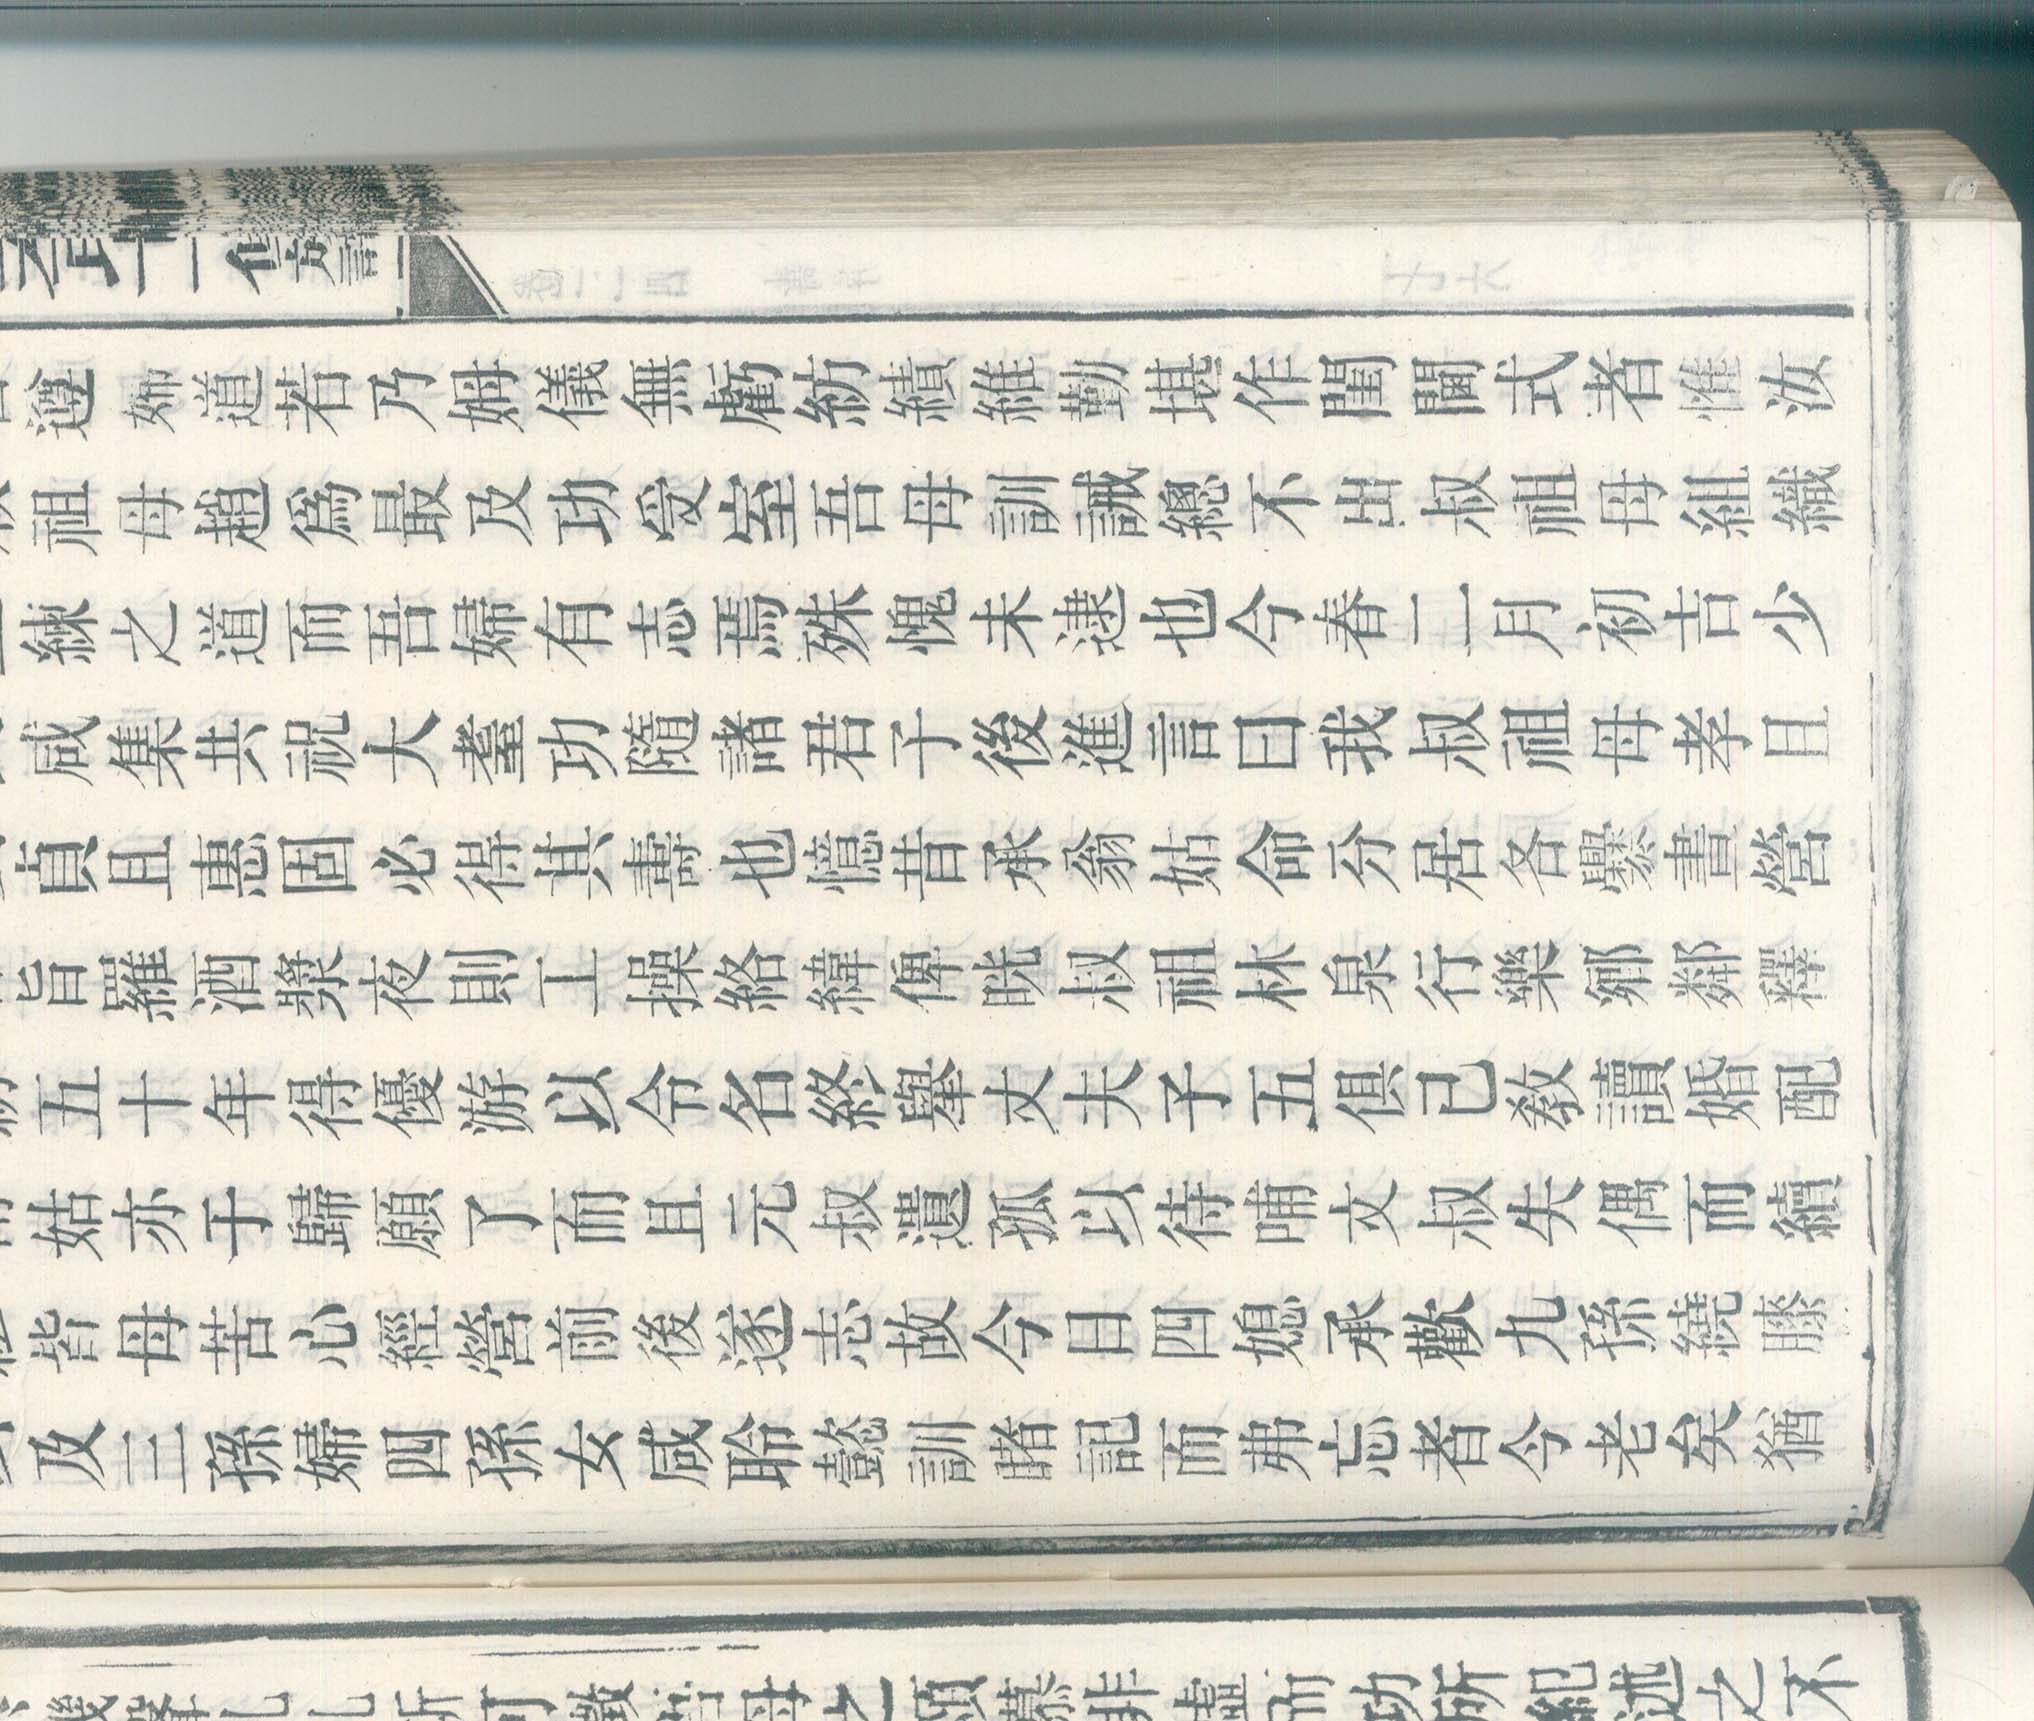 遵姊道若乃姆儀無虧紡績維勤堪作閨閫式者惟汝
祖母趙爲最及功受室吾母訓誡總不出叔祖母組織
練之道而吾婦有志焉殊愧未逮也今春二月初吉少
咸集共祝大耋功隨諸君子後進言曰我叔祖母孝且
貞且惠固必得其壽也憶昔承翁姑命分居各爨晝營
旨羅酒漿夜則工操絡緯俾晄叔祖林泉行樂鄉鄰釋
五十年得優游以令名終舉丈夫子五俱已教讀婚配
姑亦于歸願了而且元叔遺孤以待哺文叔失偶而續
皆母苦心經營前後遂志故今日四媳承歡九孫繞膝
及三孫婦四孫女咸聆懿訓賭記而弗忘者今老矣猶
母之頌慕非虛而功所紀述之不